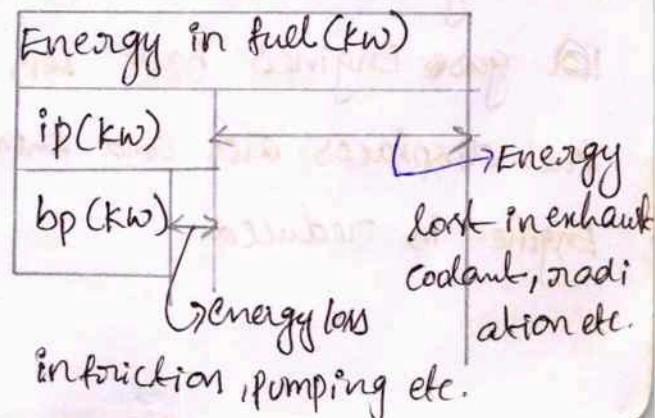 Energy in fuel (kw)
ip (kw)
bp (kw)
Energy
lost in exhaust
coolant, radi
ation etc.
energy loss
in friction, pumping etc.